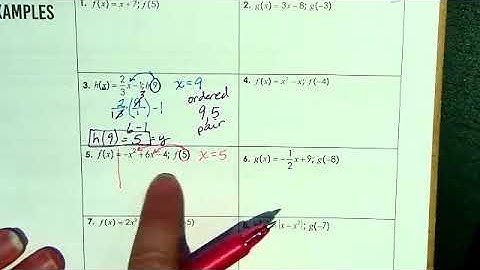 EXAMPLES
1. f(x) = x + 7; f(5)
2. g(x) = 3x - 8; g(-3)
3. h(x) = 2/3 x - 1; h(9) x = 9
2/1 3 (9 3/1) - 1
ordered
9,5
pair
6 - 1
h(9) = 5 = y
4. f(x) = x² - x; f(-4)
5. f(x) = -x² + 6x - 4; f(5) x = 5
6. g(x) = -1/2 x + 9; g(-8)
7. f(x) = 2x 5)
|x - x²|; g(-7)